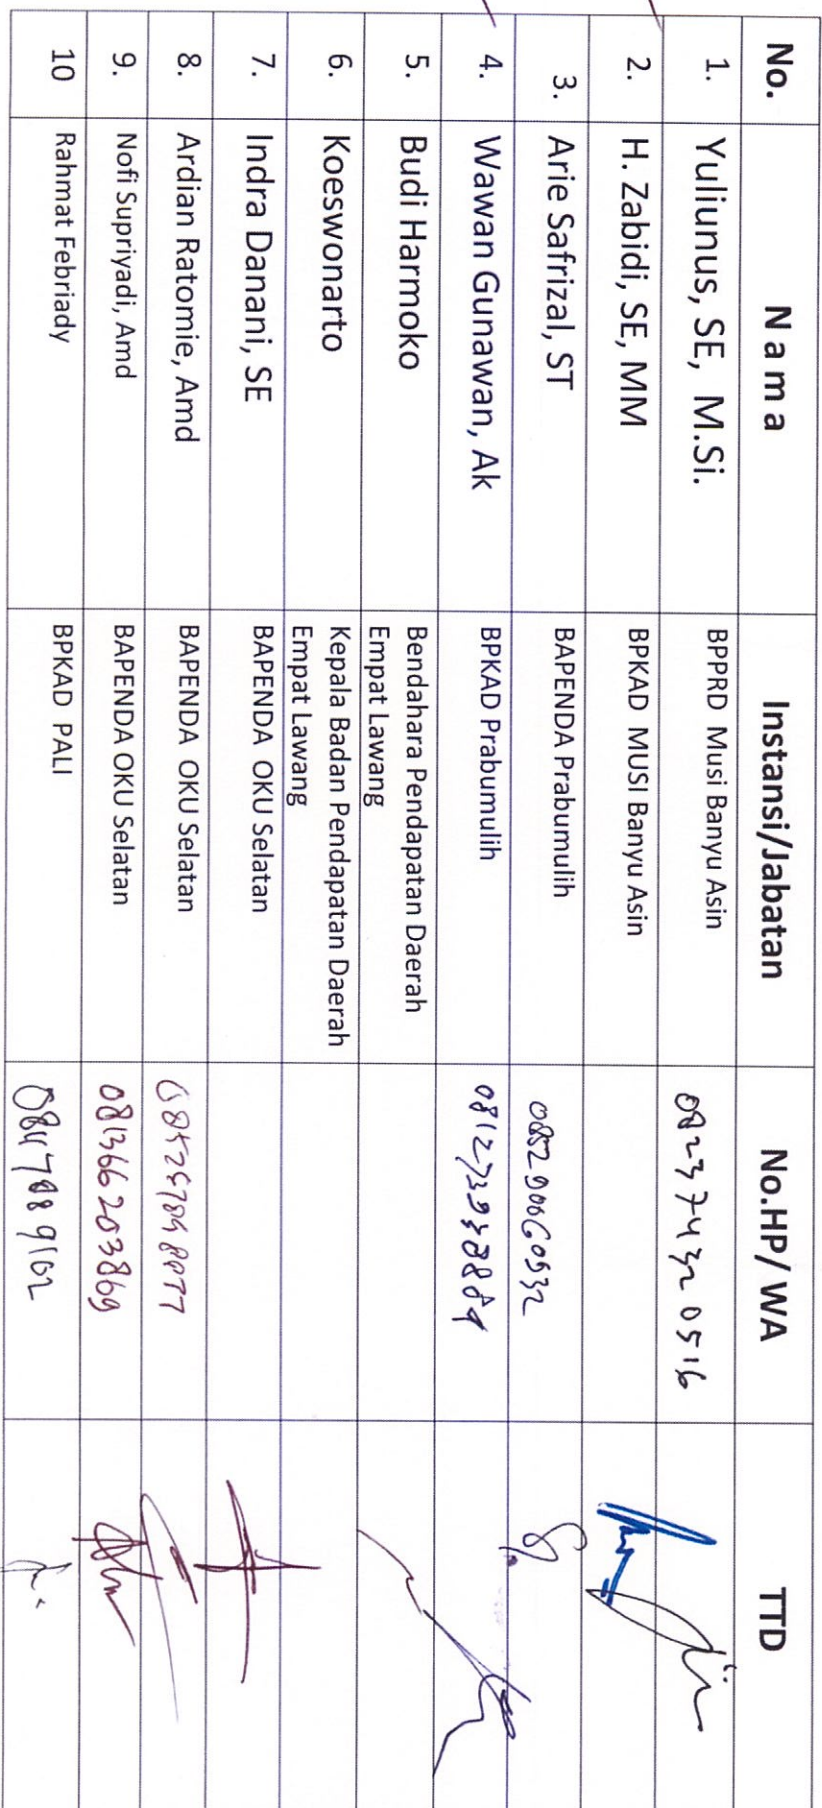 No. Nama Instansi/Jabatan No.HP/ WA TTD
1. Yuliunus, SE, M.Si. BPPRD Musi Banyu Asin 0823 7432 0516
2. H. Zabidi, SE, MM BPKAD MUSI Banyu Asin
3. Arie Safrizal, ST BAPENDA Prabumulih
4. Wawan Gunawan, Ak BPKAD Prabumulih
5. Budi Harmoko Bendahara Pendapatan Daerah
Empat Lawang
6. Koeswonarto Kepala Badan Pendapatan Daerah
Empat Lawang
7. Indra Danani, SE BAPENDA OKU Selatan
8. Ardian Ratomie, Amd BAPENDA OKU Selatan
9. Nofi Supriyadi, Amd BAPENDA OKU Selatan 081366203869
10 Rahmat Febriady BPKAD PALI